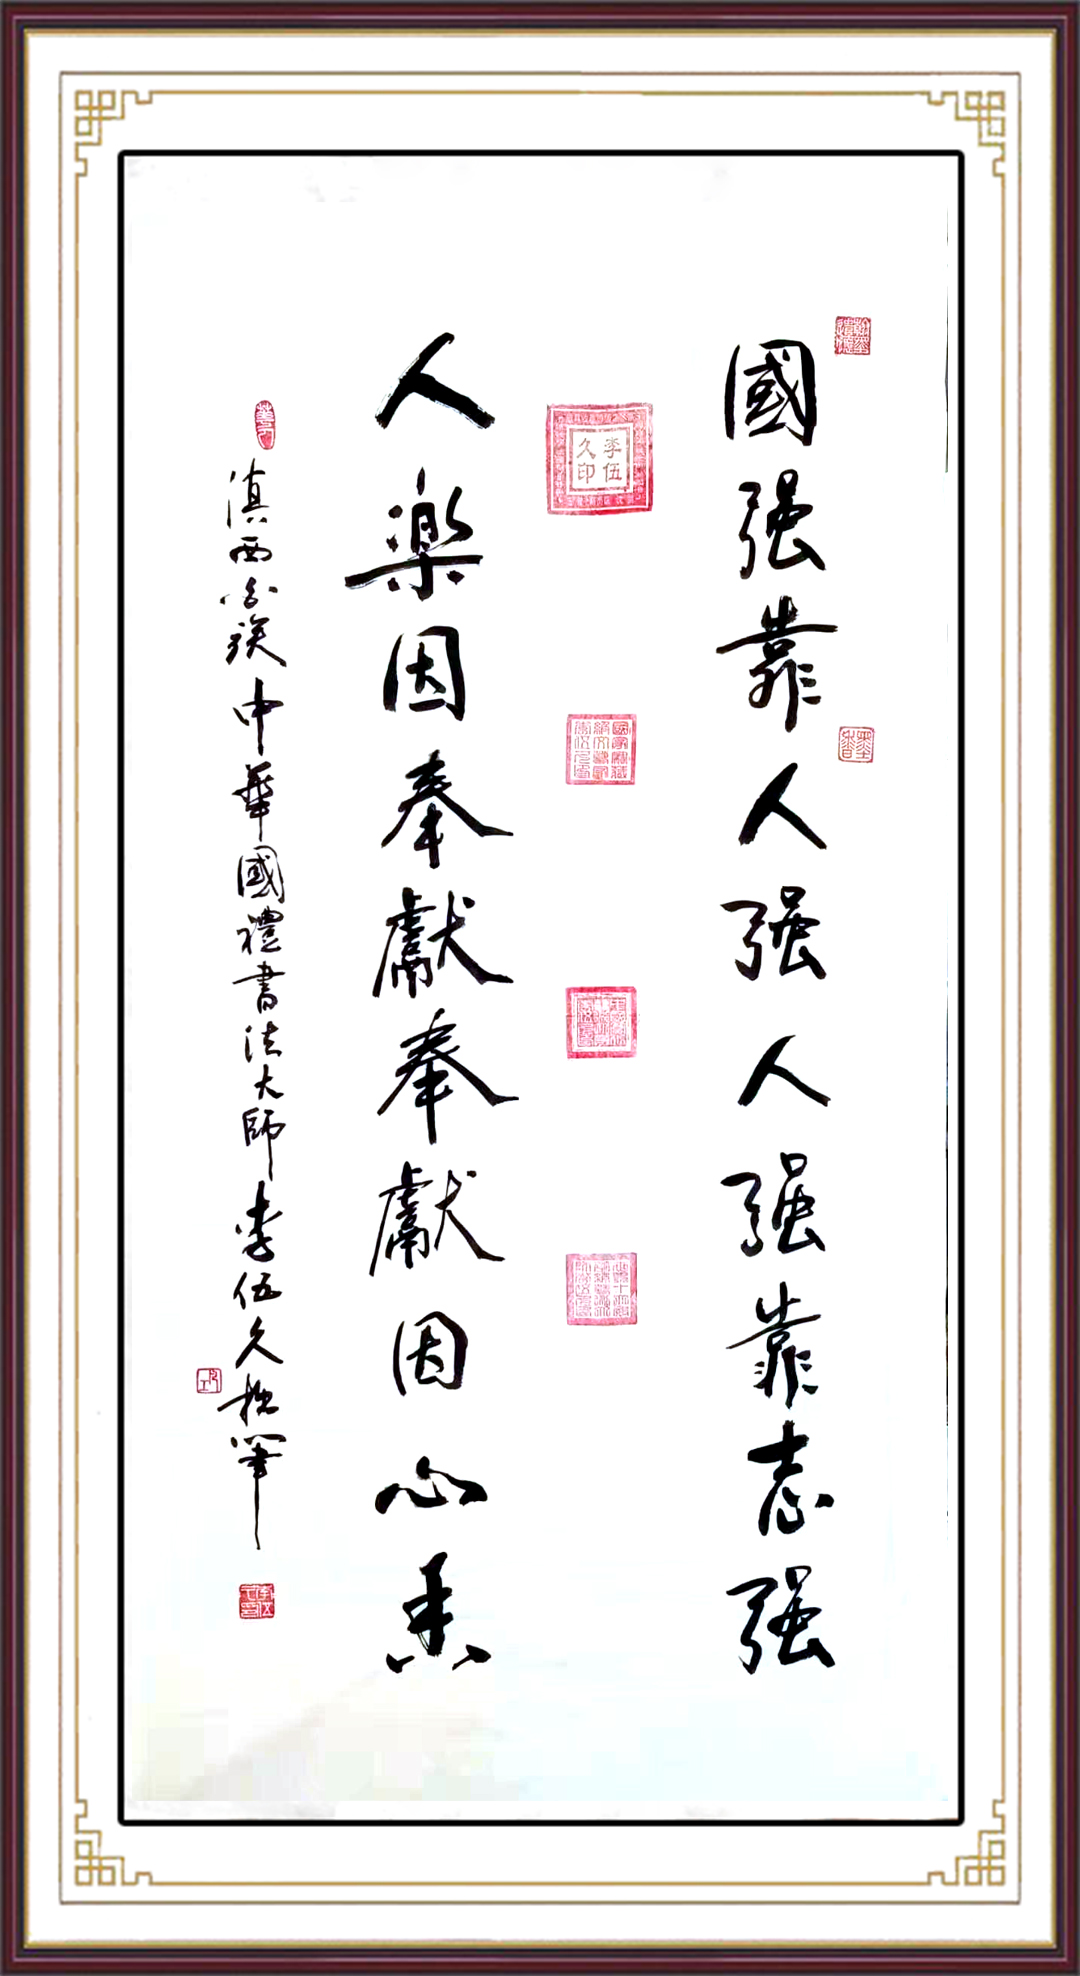 國强靠人强人强靠志强
人樂因奉獻奉獻因心善
滇西白族中華國禮書法大師李伍久拙筆
李伍久印